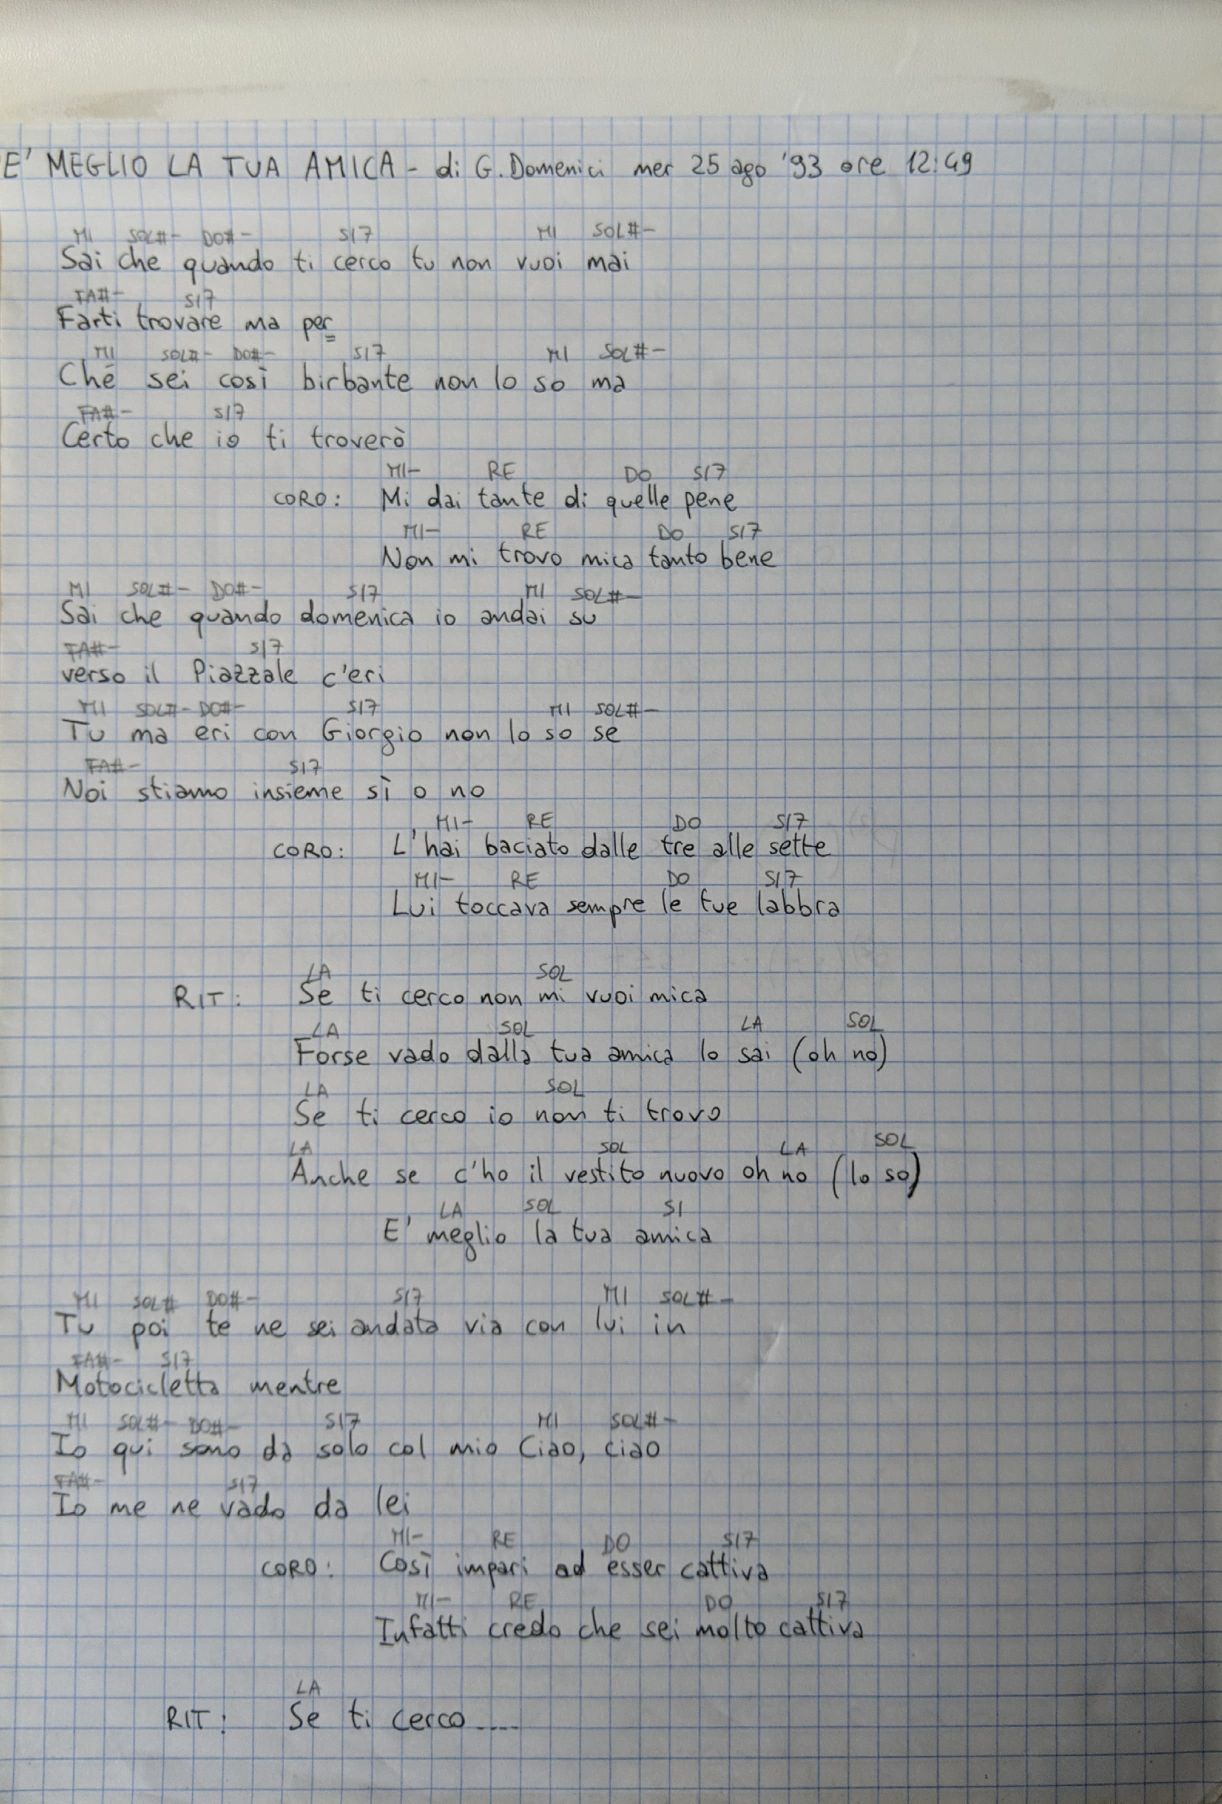 E' MEGLIO LA TUA AMICA - di G. Domenici mer 25 ago '93 ore 12:49
MI SOL#- DO#- SI7 MI SOL#-
Sai che quando ti cerco tu non vuoi mai
FA#- SI7
Farti trovare ma per
MI SOL#- DO#- SI7 MI SOL#-
Ché sei così birbante non lo so ma
FA#- SI7
Certo che io ti troverò
MI- RE DO SI7
CORO: Mi dai tante di quelle pene
MI- RE DO SI7
Non mi trovo mica tanto bene
MI SOL#- DO#- SI7 MI SOL#-
Sai che quando domenica io andai su
FA#- SI7
verso il Piazzale c'eri
MI SOL#- DO#- SI7 MI SOL#-
Tu ma eri con Giorgio non lo so se
FA#- SI7
Noi stiamo insieme sì o no
MI- RE DO SI7
CORO: L'hai baciato dalle tre alle sette
MI- RE DO SI7
Lui toccava sempre le tue labbra
LA SOL
RIT: Se ti cerco non mi vuoi mica
LA SOL LA SOL
Forse vado dalla tua amica lo sai (oh no)
LA SOL
Se ti cerco io non ti trovo
LA SOL LA SOL
Anche se c'ho il vestito nuovo oh no (lo so)
LA SOL SI
E' meglio la tua amica
MI SOL# DO#- SI7 MI SOL#-
Tu poi te ne sei andata via con lui in
FA#- SI7
Motocicletta mentre
MI SOL#- DO#- SI7 MI SOL#-
Io qui sono da solo col mio Ciao, ciao
FA#- SI7
Io me ne vado da lei
MI- RE DO SI7
CORO: Così impari ad esser cattiva
MI- RE DO SI7
Infatti credo che sei molto cattiva
LA
RIT: Se ti cerco....